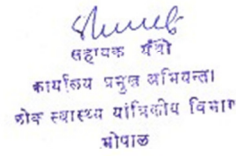 सहायक यंत्री
कार्यालय प्रमुख अभियन्ता
लोक स्वास्थ्य यांत्रिकीय विभाग
भोपाल